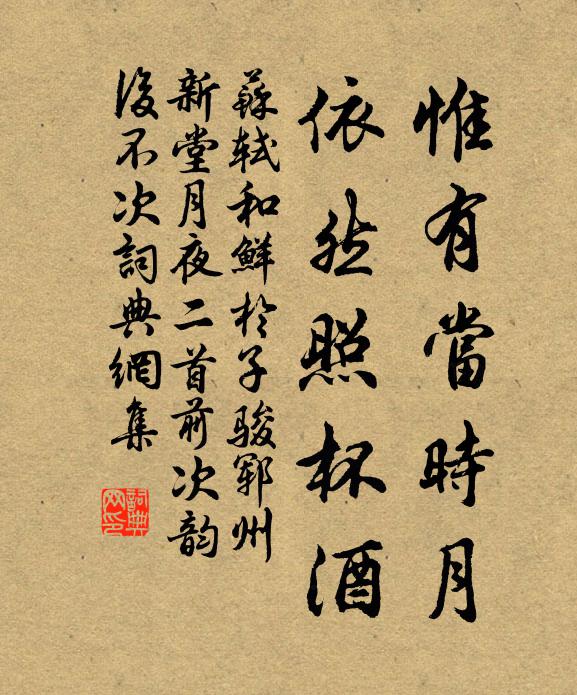 惟有當時月
依然照杯酒
蘇軾和鮮於子駿鄆州
新堂月夜二首前次韵
後不次詞典網集
詞典網印